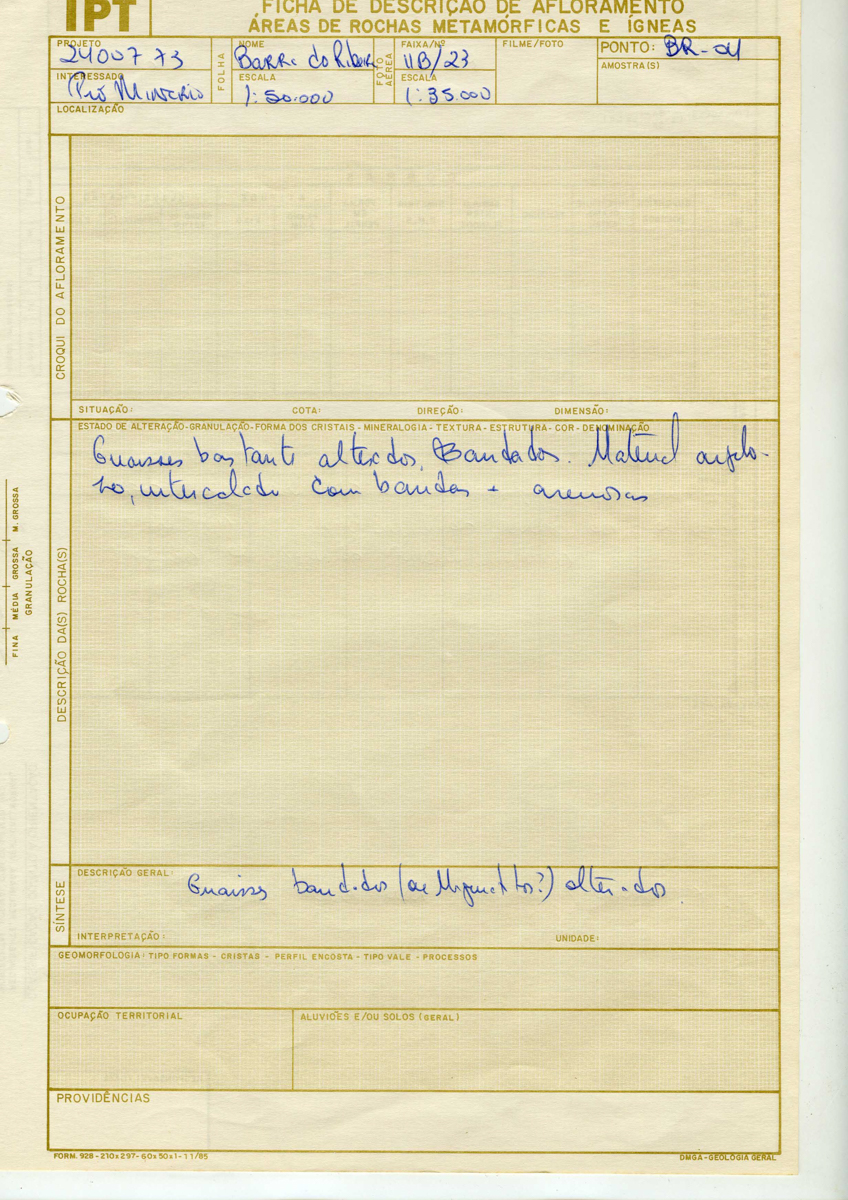 IPT
FICHA DE DESCRIÇÃO DE AFLORAMENTO
ÁREAS DE ROCHAS METAMÓRFICAS E ÍGNEAS
PROJETO
2400773
INTERESSADO
Pró Minério
FOLHA
NOME
Barra do Ribeir
ESCALA
1:50.000
FOTO AÉREA
FAIXA/Nº
11B/23
ESCALA
1:35.000
FILME/FOTO
PONTO: BR-04
AMOSTRA(S)
LOCALIZAÇÃO
CROQUI DO AFLORAMENTO
SITUAÇÃO: COTA: DIREÇÃO: DIMENSÃO:
ESTADO DE ALTERAÇÃO-GRANULAÇÃO-FORMA DOS CRISTAIS - MINERALOGIA - TEXTURA - ESTRUTURA - COR - DENOMINAÇÃO
Gnaisses bastante alterados, Bandados. Material argilo-
so, intercalado com bandas + arenosas
DESCRIÇÃO DA(S) ROCHA(S)
FINA MÉDIA GROSSA M. GROSSA
GRANULAÇÃO
SÍNTESE
DESCRIÇÃO GERAL:
Gnaisses bandados (ou Migmatitos?) alterados.
INTERPRETAÇÃO: UNIDADE:
GEOMORFOLOGIA: TIPO FORMAS - CRISTAS - PERFIL ENCOSTA - TIPO VALE - PROCESSOS
OCUPAÇÃO TERRITORIAL
ALUVIÕES E/OU SOLOS (GERAL)
PROVIDÊNCIAS
FORM. 928 - 210x297-60x50x1-11/85
DMGA-GEOLOGIA GERAL